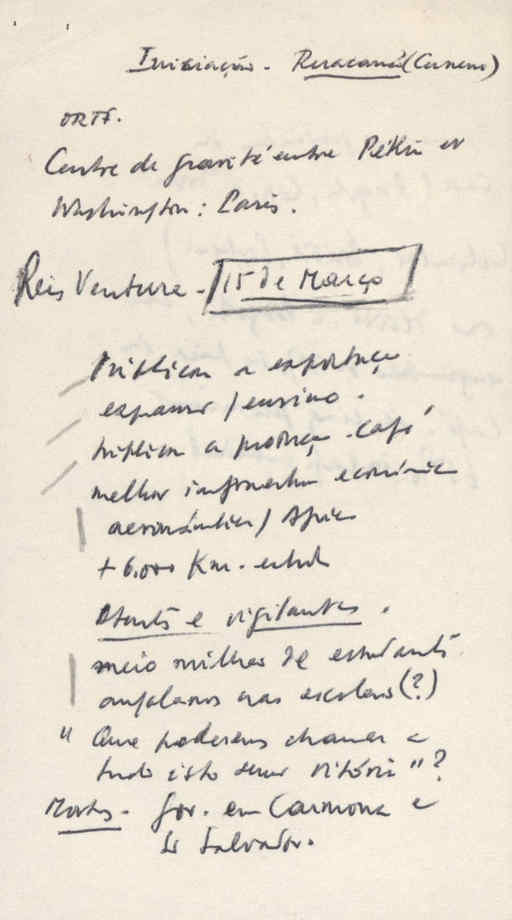 Iniciação - Reracaná (Cunene)
ORTF.
Centre de gravité entre Pékin et
Washington: Paris.
Reis Ventura - 15 de Março
triplicou a exportação
expansão / ensino.
triplicou a produção - café
melhor infraestrutura económica
aeronáutica / África
+ 6.000 Km. - estrada
Atentos e vigilantes.
meio milhão de estudantes
angolanos nas escolas (?)
" Que poderemos chamar a
tudo isto senão vitória " ?
Mortos - Gov. em Carmona e
S. Salvador.